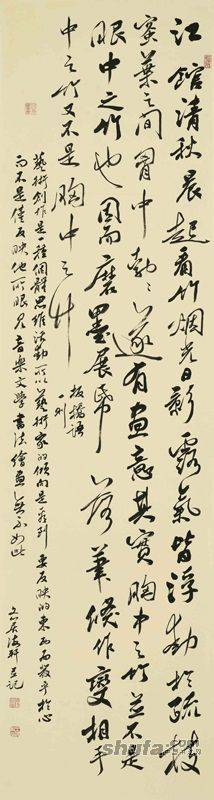 江館清秋晨起看竹烟光日影露氣皆浮動於疏枝
密葉之間胸中勃勃遂有畫意其實胸中之竹並不是
眼中之竹也因而磨墨展紙落筆倏作變相手
中之竹又不是胸中之竹
板橋語
一則
藝術創作是一種個體思維活動所以藝術家的傾向是看到要反映的東西而於心
而不是僅反映他所眼見音樂文學書法繪畫無不如此